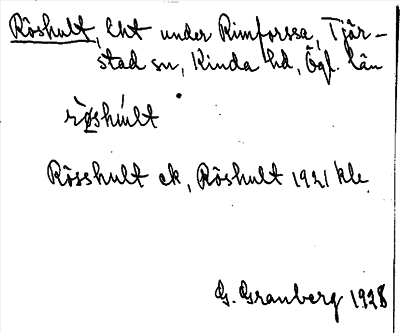 Röshult, lht under Rimforssa, Tjär-
stad sn, Kinda hd, Ögl. län
rö̀shúlt
Rösshult ek, Röshult 1921 kle
G. Granberg 1928